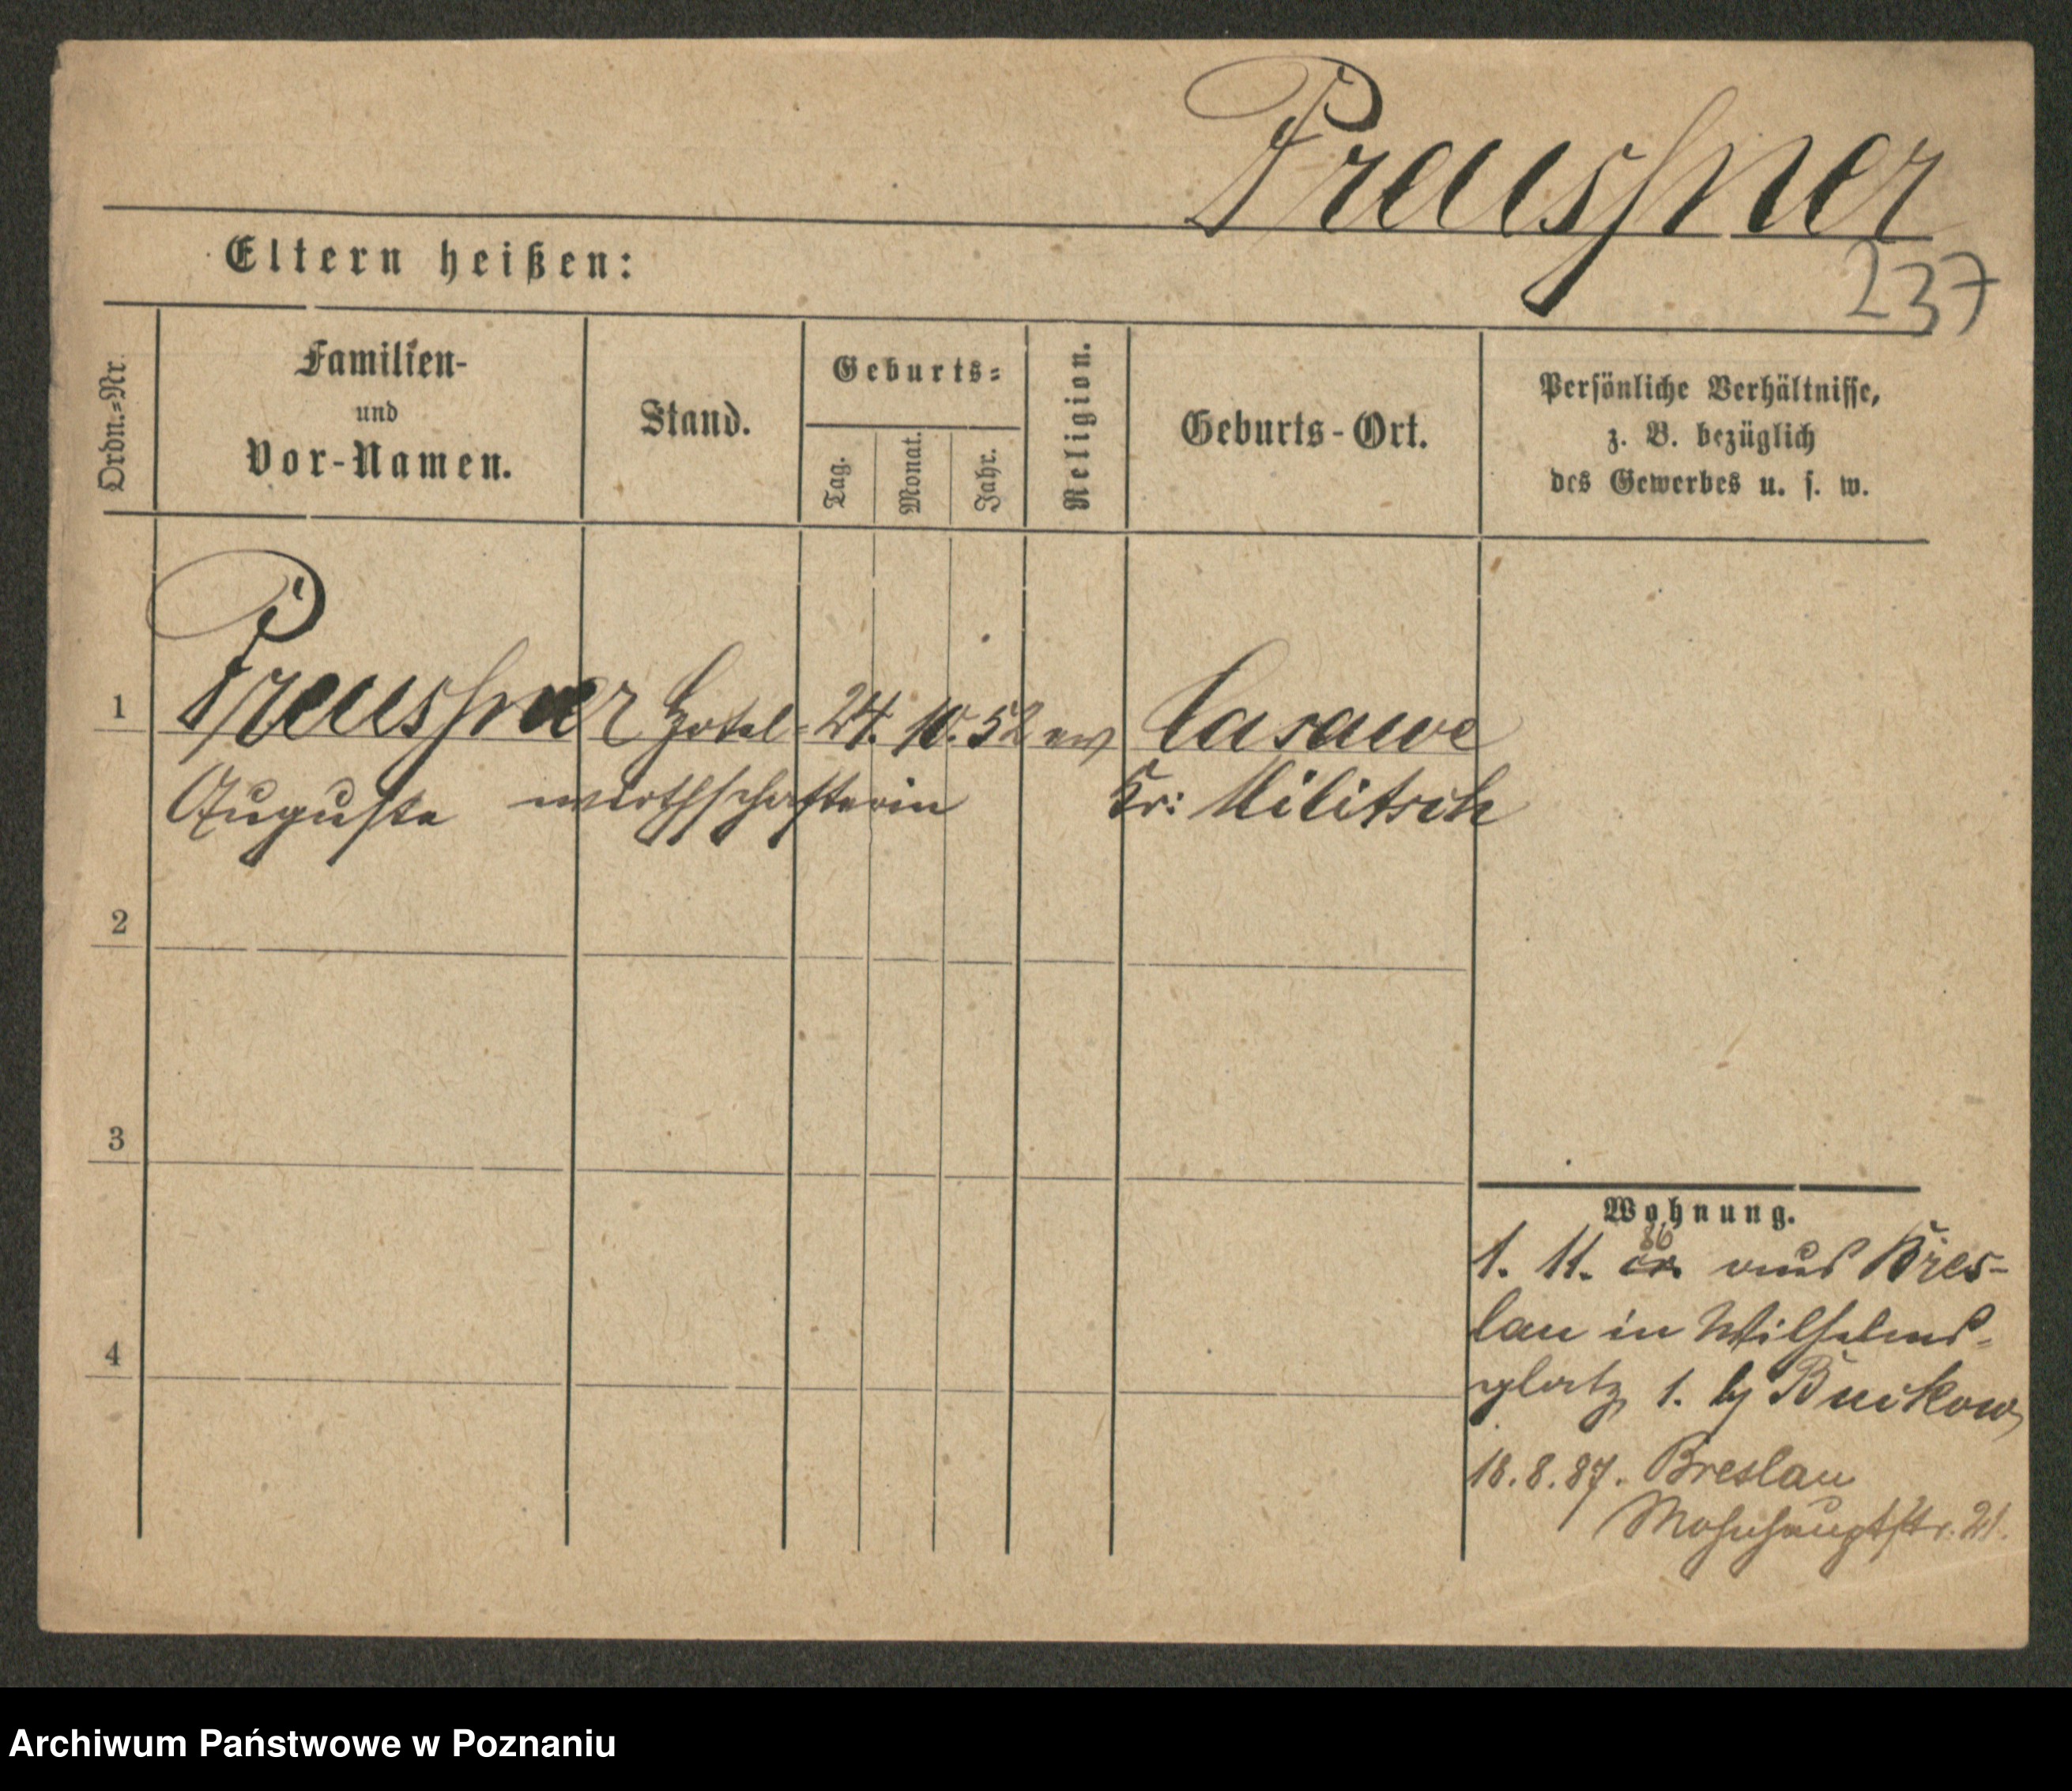 Preußner
237
Eltern heißen:
Ordn.=Nr.
Familien-
und
Vor-Namen.
Stand.
Geburts=
Tag.
Monat.
Jahr.
Religion.
Geburts-Ort.
Persönliche Verhältnisse,
z. B. bezüglich
des Gewerbes u. s. w.
1 Preußner Hotel= 24. 10. 52 ev Casawe
Auguste wirthschafterin Kr: Militsch
2
3
4
Wohnung.
86
1. 11. cr. aus Bres-
lau in Wilhelms-
platz 1. by Buckow
18.8.87. Breslau
Mohnhauptstr. 21.
Archiwum Państwowe w Poznaniu